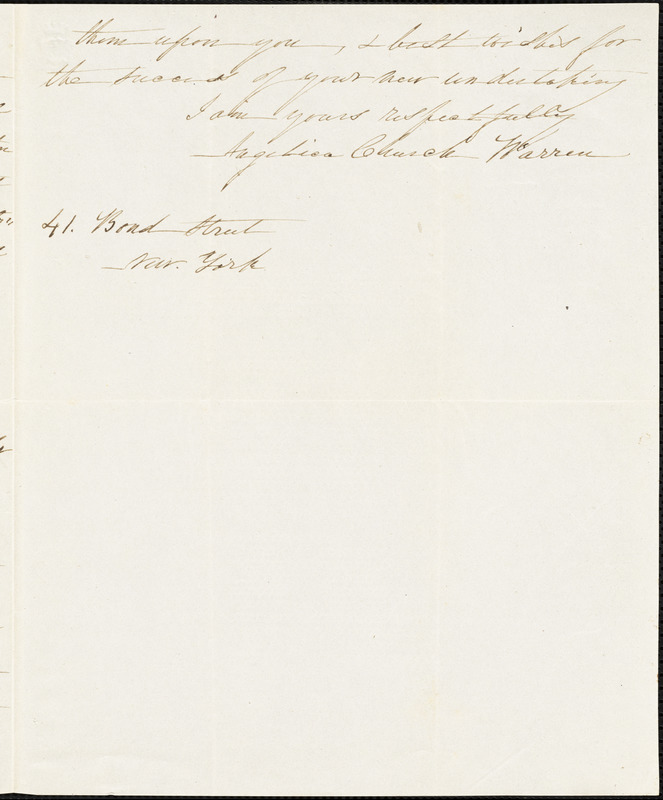 them upon you, & best wishes for
the success of your new undertaking
I am yours respectfully
Angelica Church Warren
41. Bond Street
New. York